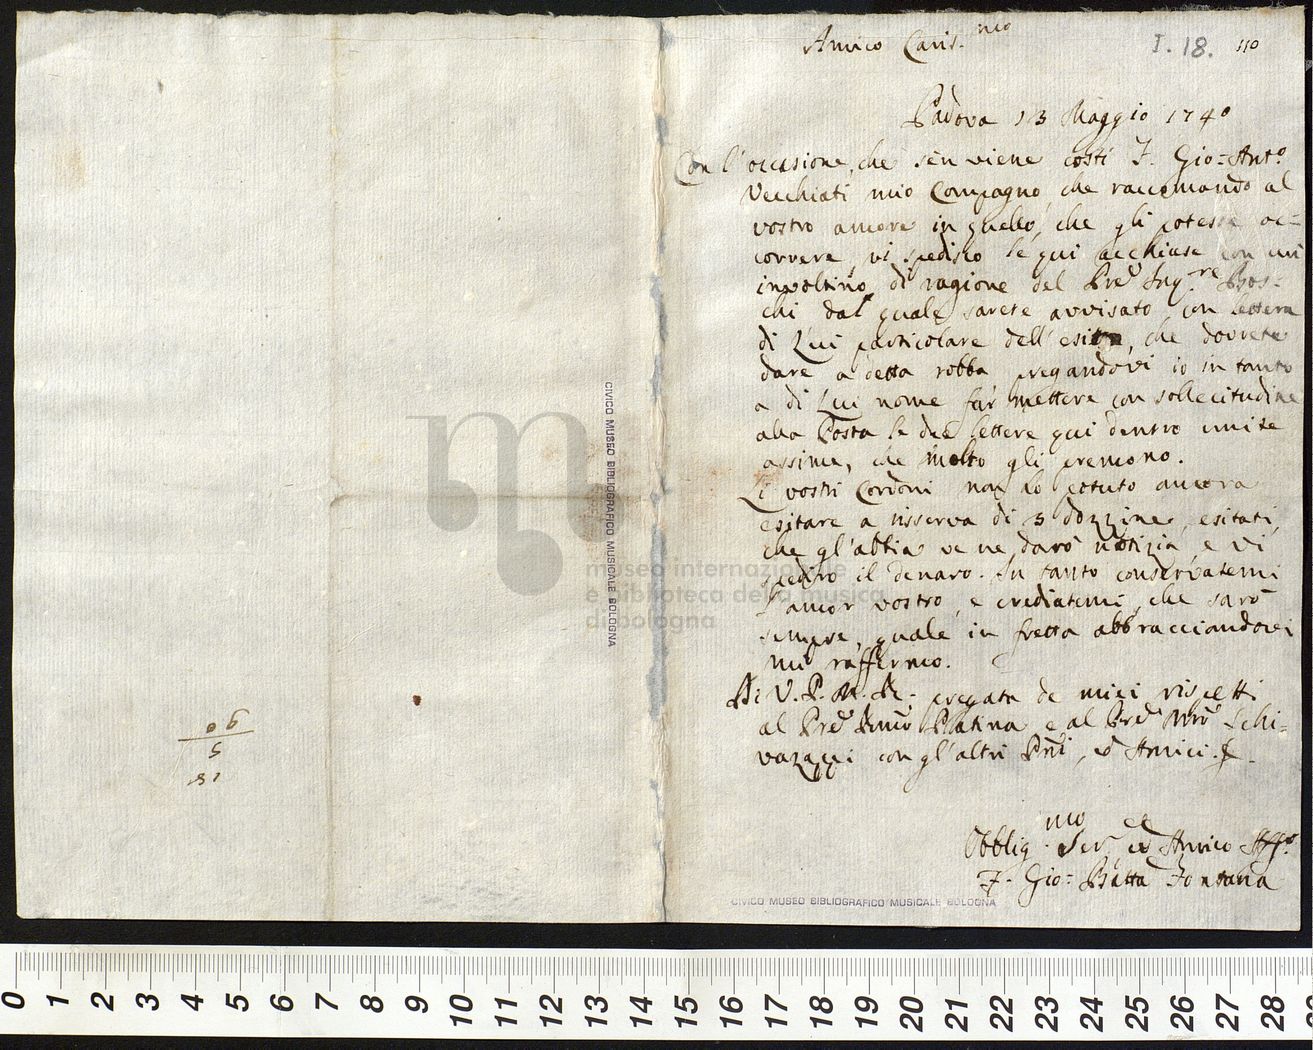 Amico Caris.mo
I. 18. 110
Padova 13 Maggio 1740
Con l'occasione, che sèn viene costì F. Gio: Anto
Vecchiati mio Compagno, che raccomando al
vostro amore in quello, che gli potesse oc=
correre, vi spedisco le qui acchiuse con un
involtino di ragione del Pre Inq.re Bos=
chi dal quale sarete avvisato con lettera
di Lui particolare dell'esito, che dovrete
dare a detta robba pregandovi io in tanto
a di Lui nome far mettere con sollecitudine
alla Posta le due lettere qui dentro unite
assime, che molto gli premono.
I vostri Cordoni non hò potuto ancora
esitare a risserva di 3 dozzine, esitati,
che gl'abbia ve ne darò notizia, e vi
spedirò il denaro. In tanto conservatemi
l'amor vostro, e crediatemi, che sarò
sempre, quale in fretta abbracciandovi
mi raffermo.
Di V. P. M. R. pregata de miei rispetti
al Pre Platina e al Pre Mro Schi=
vazappi con gl'altri Pri, ed Amici.
Obblig.mo Ser. ed Amico Affo
F. Gio: Batta Fontana
90
5
18
CIVICO MUSEO BIBLIOGRAFICO MUSICALE BOLOGNA
CIVICO MUSEO BIBLIOGRAFICO MUSICALE BOLOGNA
museo internazionale
e biblioteca della musica
di bologna
0 1 2 3 4 5 6 7 8 9 10 11 12 13 14 15 16 17 18 19 20 21 22 23 24 25 26 27 28